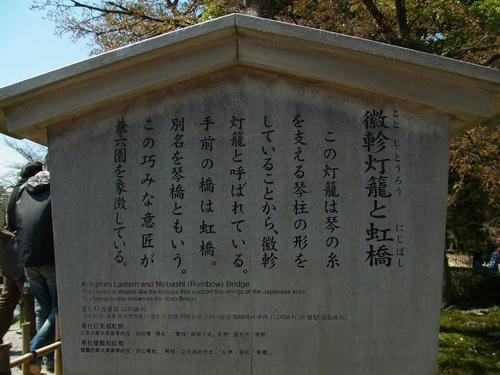 ことじとうろう にじばし
徽軫灯籠と虹橋
この灯籠は琴の糸
を支える琴柱の形を
していることから、徽軫
灯籠と呼ばれている。
手前の橋は虹橋。
別名を琴橋ともいう。
この巧みな意匠が
兼六園を象徴している。
Kotojitoro Lantern and Nijibashi (Rainbow) Bridge
This lantern is shaped like the bridges that support the strings of the Japanese koto.
The bridge is also known as the Koto Bridge.